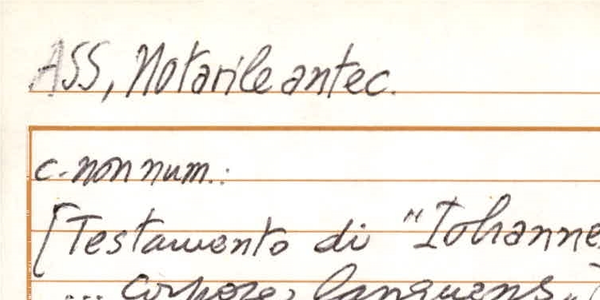 ASS, Notarile antec.
c. non num.:
[Testamento di "Iohanne
... corpore, languens